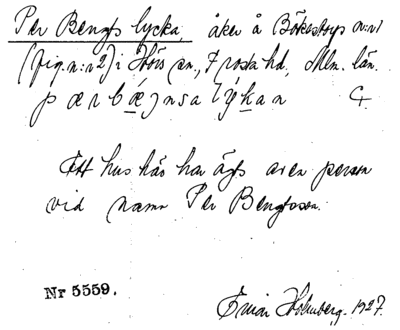 Per Bengts lycka, åker å Bökestorps n:r 1
(fig. n:r 2) i Hörs sn., Frosta hd, Mlm. län.
pærbæŋnsalýkan
Ett hus här har ägts av en person
vid namn Per Bengtsson.
Nr 5559.
Einar Holmberg. 1927.